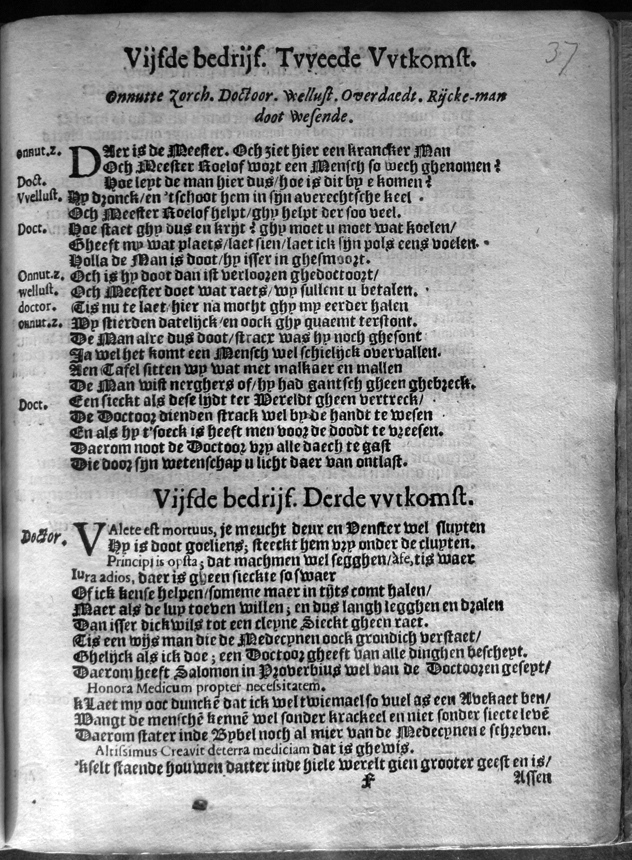 37
Vijfde bedrijf. Tvveede Vvtkomst.
Onnutte Zorch. Doctoor. Wellust. Overdaedt. Rijcke-man
doot wesende.
Onnut.z. DAer is de Meester. Och ziet hier een krancker Man
Och Meester Roelof wort een Mensch so wech ghenomen?
Doct. Hoe leyt de man hier dus/hoe is dit by e komen?
Vvellust. Hy dronck/en 'tschoot hem in sijn averechtsche keel.
Och Meester Roelof helpt/ghy helpt der soo veel.
Doct. Hoe staet ghy dus en krijt? ghy moet u moet wat koelen/
Gheeft my wat plaets/laet sien/laet ick sijn pols eens voelen.
Holla de Man is doot/hy isser in ghesmoort.
Onnut.z. Och is hy doot dan ist verloozen ghedoctoort/
wellust. Och Meester doet wat raets/wy sullent u betalen.
doctor. Tis nu te laet/hier na mocht ghy my eerder halen
onnut.z. Wy stierden datelijck/en oock ghy quaemt terstont.
De Man alre dus doot/stracx was hy noch ghesont
Ja wel het komt een Mensch wel schielijck overvallen.
Aen Tafel sitten wy wat met malkaer en mallen
De Man wist nerghers of/hy had gantsch gheen ghebreck.
Doct. Een sieckt als dese lijdt ter Wereldt gheen vertreck/
De Doctoor dienden strack wel by de handt te wesen
En als hy t'soeck is heeft men voor de doodt te vreesen.
Daerom noot de Doctoor vry alle daech te gast
Die door sijn wetenschap u licht daer van ontlast.
Vijfde bedrijf. Derde vvtkomst.
Doctor. VAlete est mortuus, je meucht deur en Venster wel sluyten
Hy is doot goeliens; steeckt hem vry onder de cluyten.
Principiis opsta; dat machmen wel segghen/afe, tis waer
Iura adios, daer is gheen sieckte so swaer
Of ick kense helpen/someme maer in tijts comt halen/
Maer als de luy toeven willen; en dus langh legghen en dralen
Dan isser dickwils tot een cleyne Sieckt gheen raet.
Tis een wijs man die de Medecynen oock grondich verstaet/
Ghelijck als ick doe; een Doctoor gheeft van alle dinghen bescheyt.
Daerom heeft Salomon in Proverbius wel van de Doctooren geseyt/
Honora Medicum propter necessitatem.
kLaet my oot dunckē dat ick wel twiemael so vuel as een Avekaet ben/
Wangt de menschē kennē wel sonder krackeel en niet sonder siecte levē
Daerom stater inde Bybel noch al mier van de Medecynen e schreven.
Altissimus Creavit deterra mediciam dat is ghewis.
'kselt staende houwen datter inde hiele werelt gien grooter geest en is/
F Assen